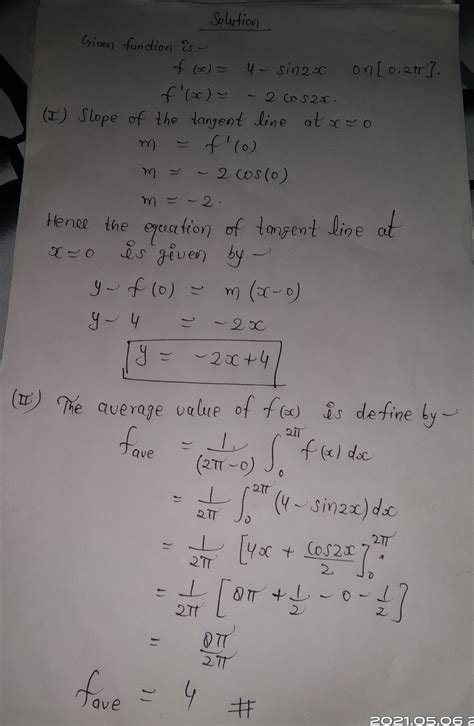 Solution
Given function is -
f(x) = 4 - sin2x on [0.2π].
f'(x) = - 2 cos2x.
(I) Slope of the tangent line at x=0
m = f'(0)
m = - 2 cos(0)
m = - 2.
Hence the equation of tangent line at
x=0 is given by -
y - f(0) = m (x-0)
y - 4 = - 2x
y = - 2x + 4
(II) The average value of f(x) is define by -
fave = 1/(2π-0) ∫₀^2π f(x) dx
= 1/2π ∫₀^2π (4 - sin2x) dx
= 1/2π [4x + cos2x/2]₀^2π
= 1/2π [8π + 1/2 - 0 - 1/2]
= 8π/2π
fave = 4 #
2021.05.06